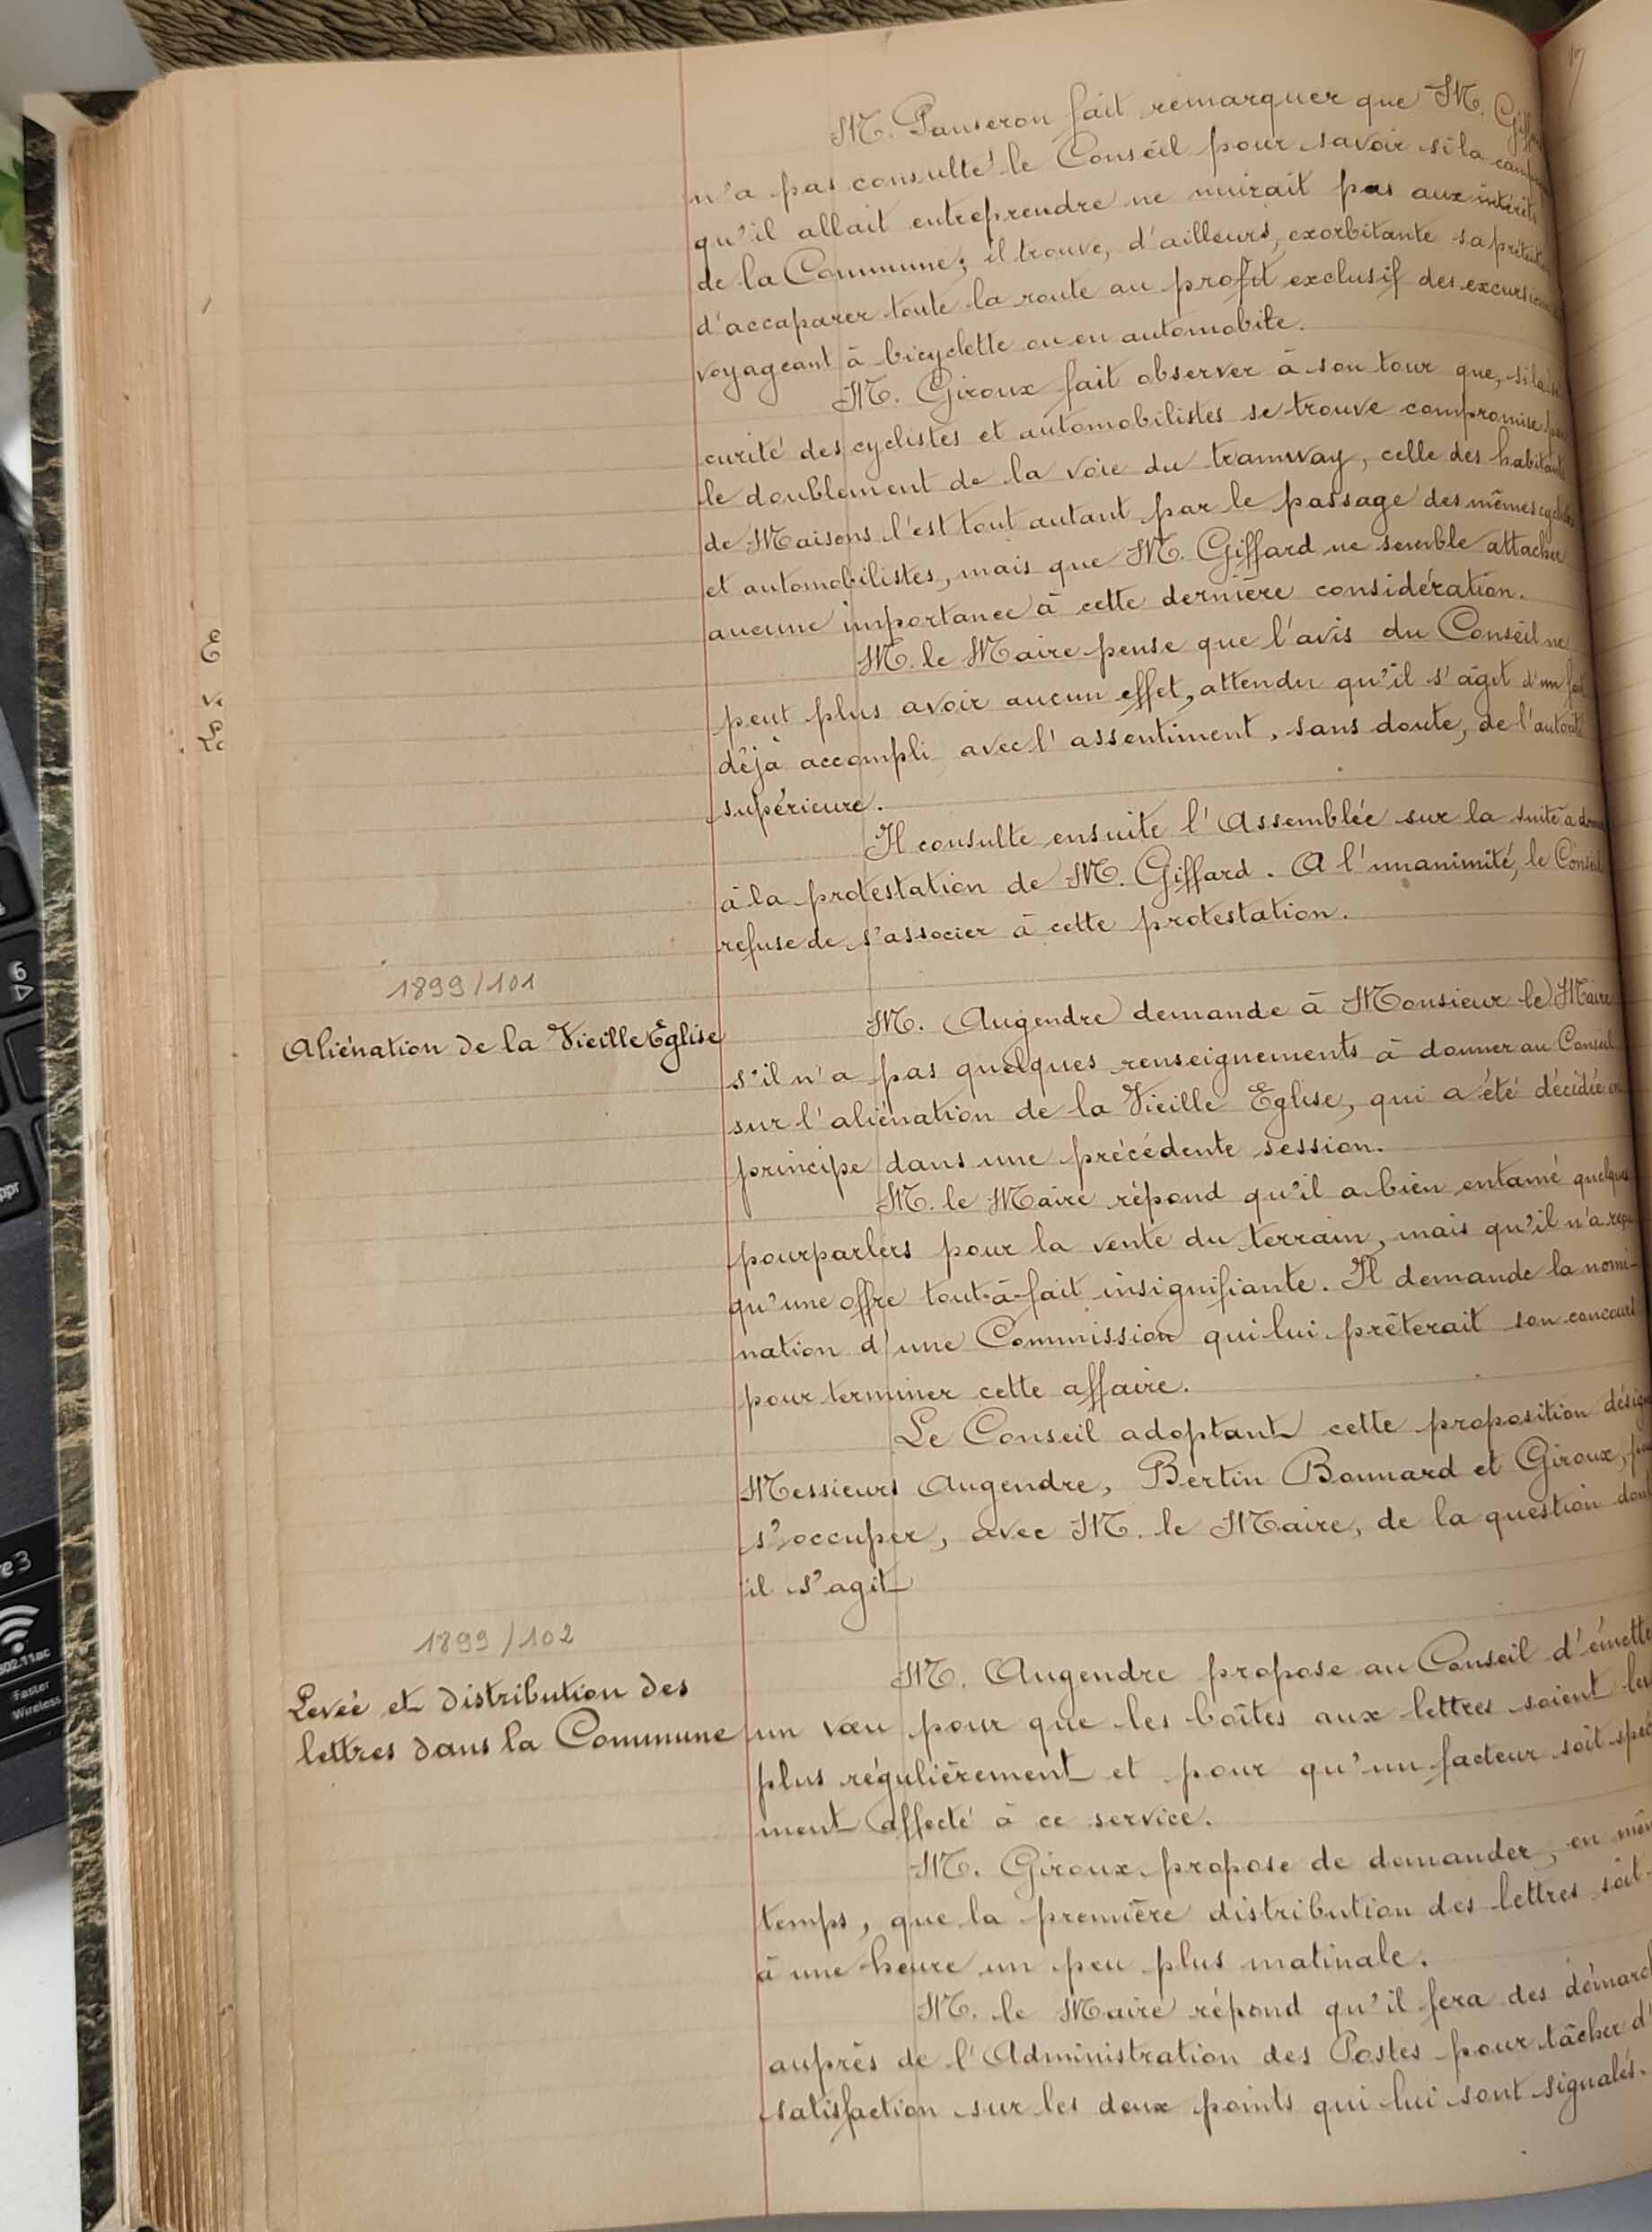 M. Panseron fait remarquer que M.
n'a pas consulté le Conseil pour savoir si la
qu'il allait entreprendre ne nuirait pas aux intérêts
de la Commune; il trouve, d'ailleurs, exorbitante sa
d'accaparer toute la route au profit exclusif des
voyageant à bicyclette ou en automobile.
M. Giroux fait observer à son tour que, si la
curité des cyclistes et automobilistes se trouve compromise
le doublement de la voie du tramway, celle des habitants
de Maisons l'est tout autant par le passage des mêmes
et automobilistes, mais que M. Giffard ne semble attacher
aucune importance à cette dernière considération.
M. le Maire pense que l'avis du Conseil ne
peut plus avoir aucun effet, attendu qu'il s'agit d'un
déjà accompli avec l'assentiment, sans doute, de
supérieure.
Il consulte ensuite l'Assemblée sur la suite à
à la protestation de M. Giffard. A l'unanimité, le Conseil
refuse de s'associer à cette protestation.
1899/101
Aliénation de la Vieille Eglise
M. Augendre demande à Monsieur le Maire
s'il n'a pas quelques renseignements à donner au Conseil
sur l'aliénation de la Vieille Eglise, qui a été décidée en
principe dans une précédente session.
M. le Maire répond qu'il a bien entamé quelques
pourparlers pour la vente du terrain, mais qu'il n'a
qu'une offre tout-à-fait insignifiante. Il demande la nomi-
nation d'une Commission qui lui prêterait son concours
pour terminer cette affaire.
Le Conseil adoptant cette proposition
Messieurs Augendre, Bertin Bonnard et Giroux,
s'occuper, avec M. le Maire, de la question dont
il s'agit
1899/102
Levée et distribution des
lettres dans la Commune
M. Augendre propose au Conseil
un vœu pour que les boîtes aux lettres soient
plus régulièrement et pour qu'un facteur soit
ment affecté à ce service.
M. Giroux propose de demander, en
temps, que la première distribution des lettres soit
à une heure un peu plus matinale.
M. le Maire répond qu'il fera des
auprès de l'Administration des Postes pour tâcher
satisfaction sur les deux points qui lui sont signalés.
6
802.11ac
Faster
Wireless